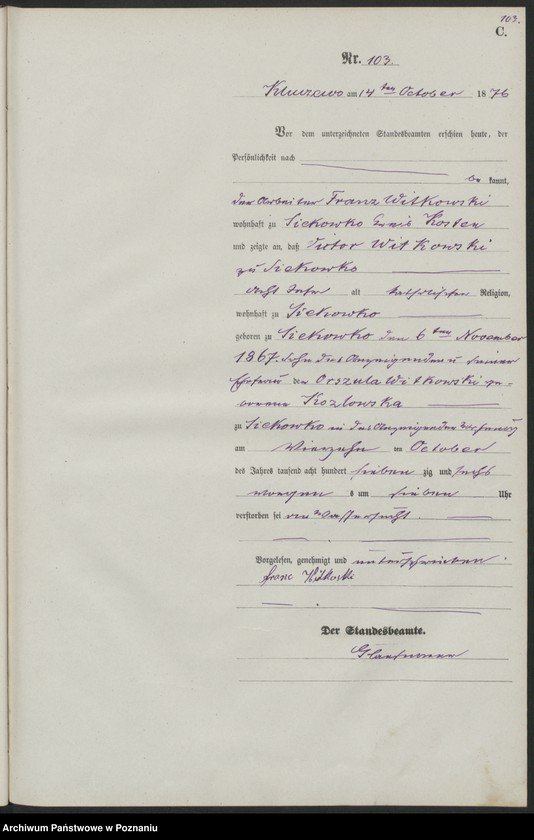 103.
C.
Nr. 103.
Kluczewo am 14 ten October 1876
Vor dem unterzeichneten Standesbeamten erschien heute, der
Persönlichkeit nach
be kannt,
der Arbeiter Franz Witkowski
wohnhaft zu Siekowko Kreis Kosten
und zeigte an, daß Victor Witkowski
zu Siekowko
acht Jahr alt katholischer Religion,
wohnhaft zu Siekowko
geboren zu Siekowko den 6 ten November
1867. Sohn des Anzeigenden u seiner
Ehefrau der Orszula Witkowski ge-
borene Kozlowska
zu Siekowko in des Anzeigenden Wohnung
am Vierzehn ten October
des Jahres tausend acht hundert sieben zig und sechs
morgen s um sieben Uhr
verstorben sei an Wassersucht.
Vorgelesen, genehmigt und unterschrieben.
franc Witkoski
Der Standesbeamte.
Archiwum Państwowe w Poznaniu